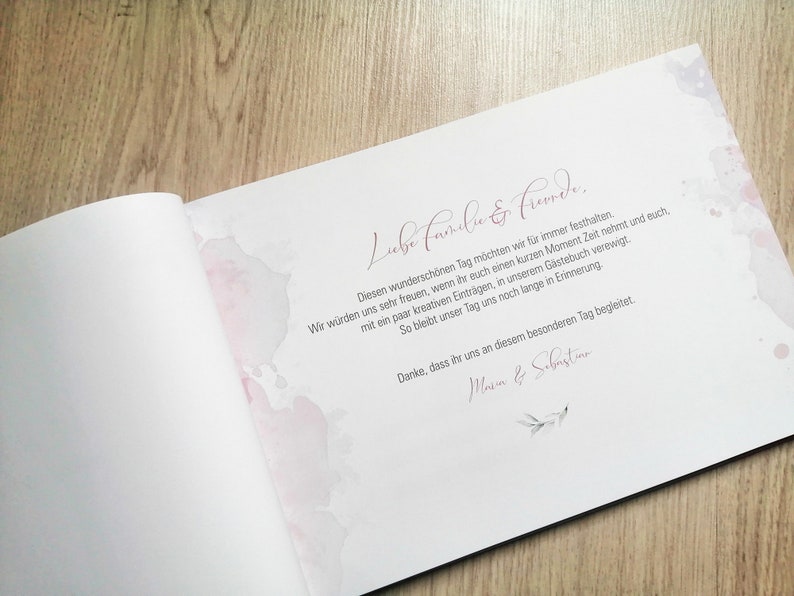 Liebe Familie & Freunde,
Diesen wunderschönen Tag möchten wir für immer festhalten.
Wir würden uns sehr freuen, wenn ihr euch einen kurzen Moment Zeit nehmt und euch,
mit ein paar kreativen Einträgen, in unserem Gästebuch verewigt.
So bleibt unser Tag uns noch lange in Erinnerung.
Danke, dass ihr uns an diesem besonderen Tag begleitet.
Maria & Sebastian